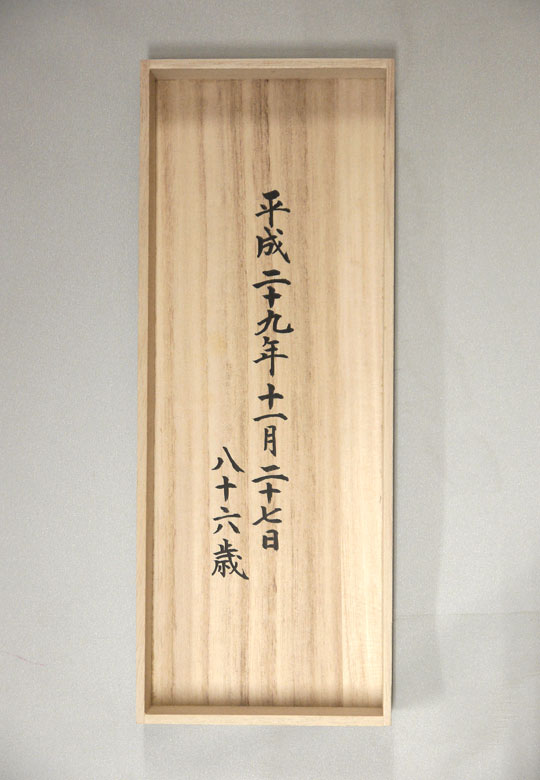 平成二十九年十一月二十七日
八十六歳